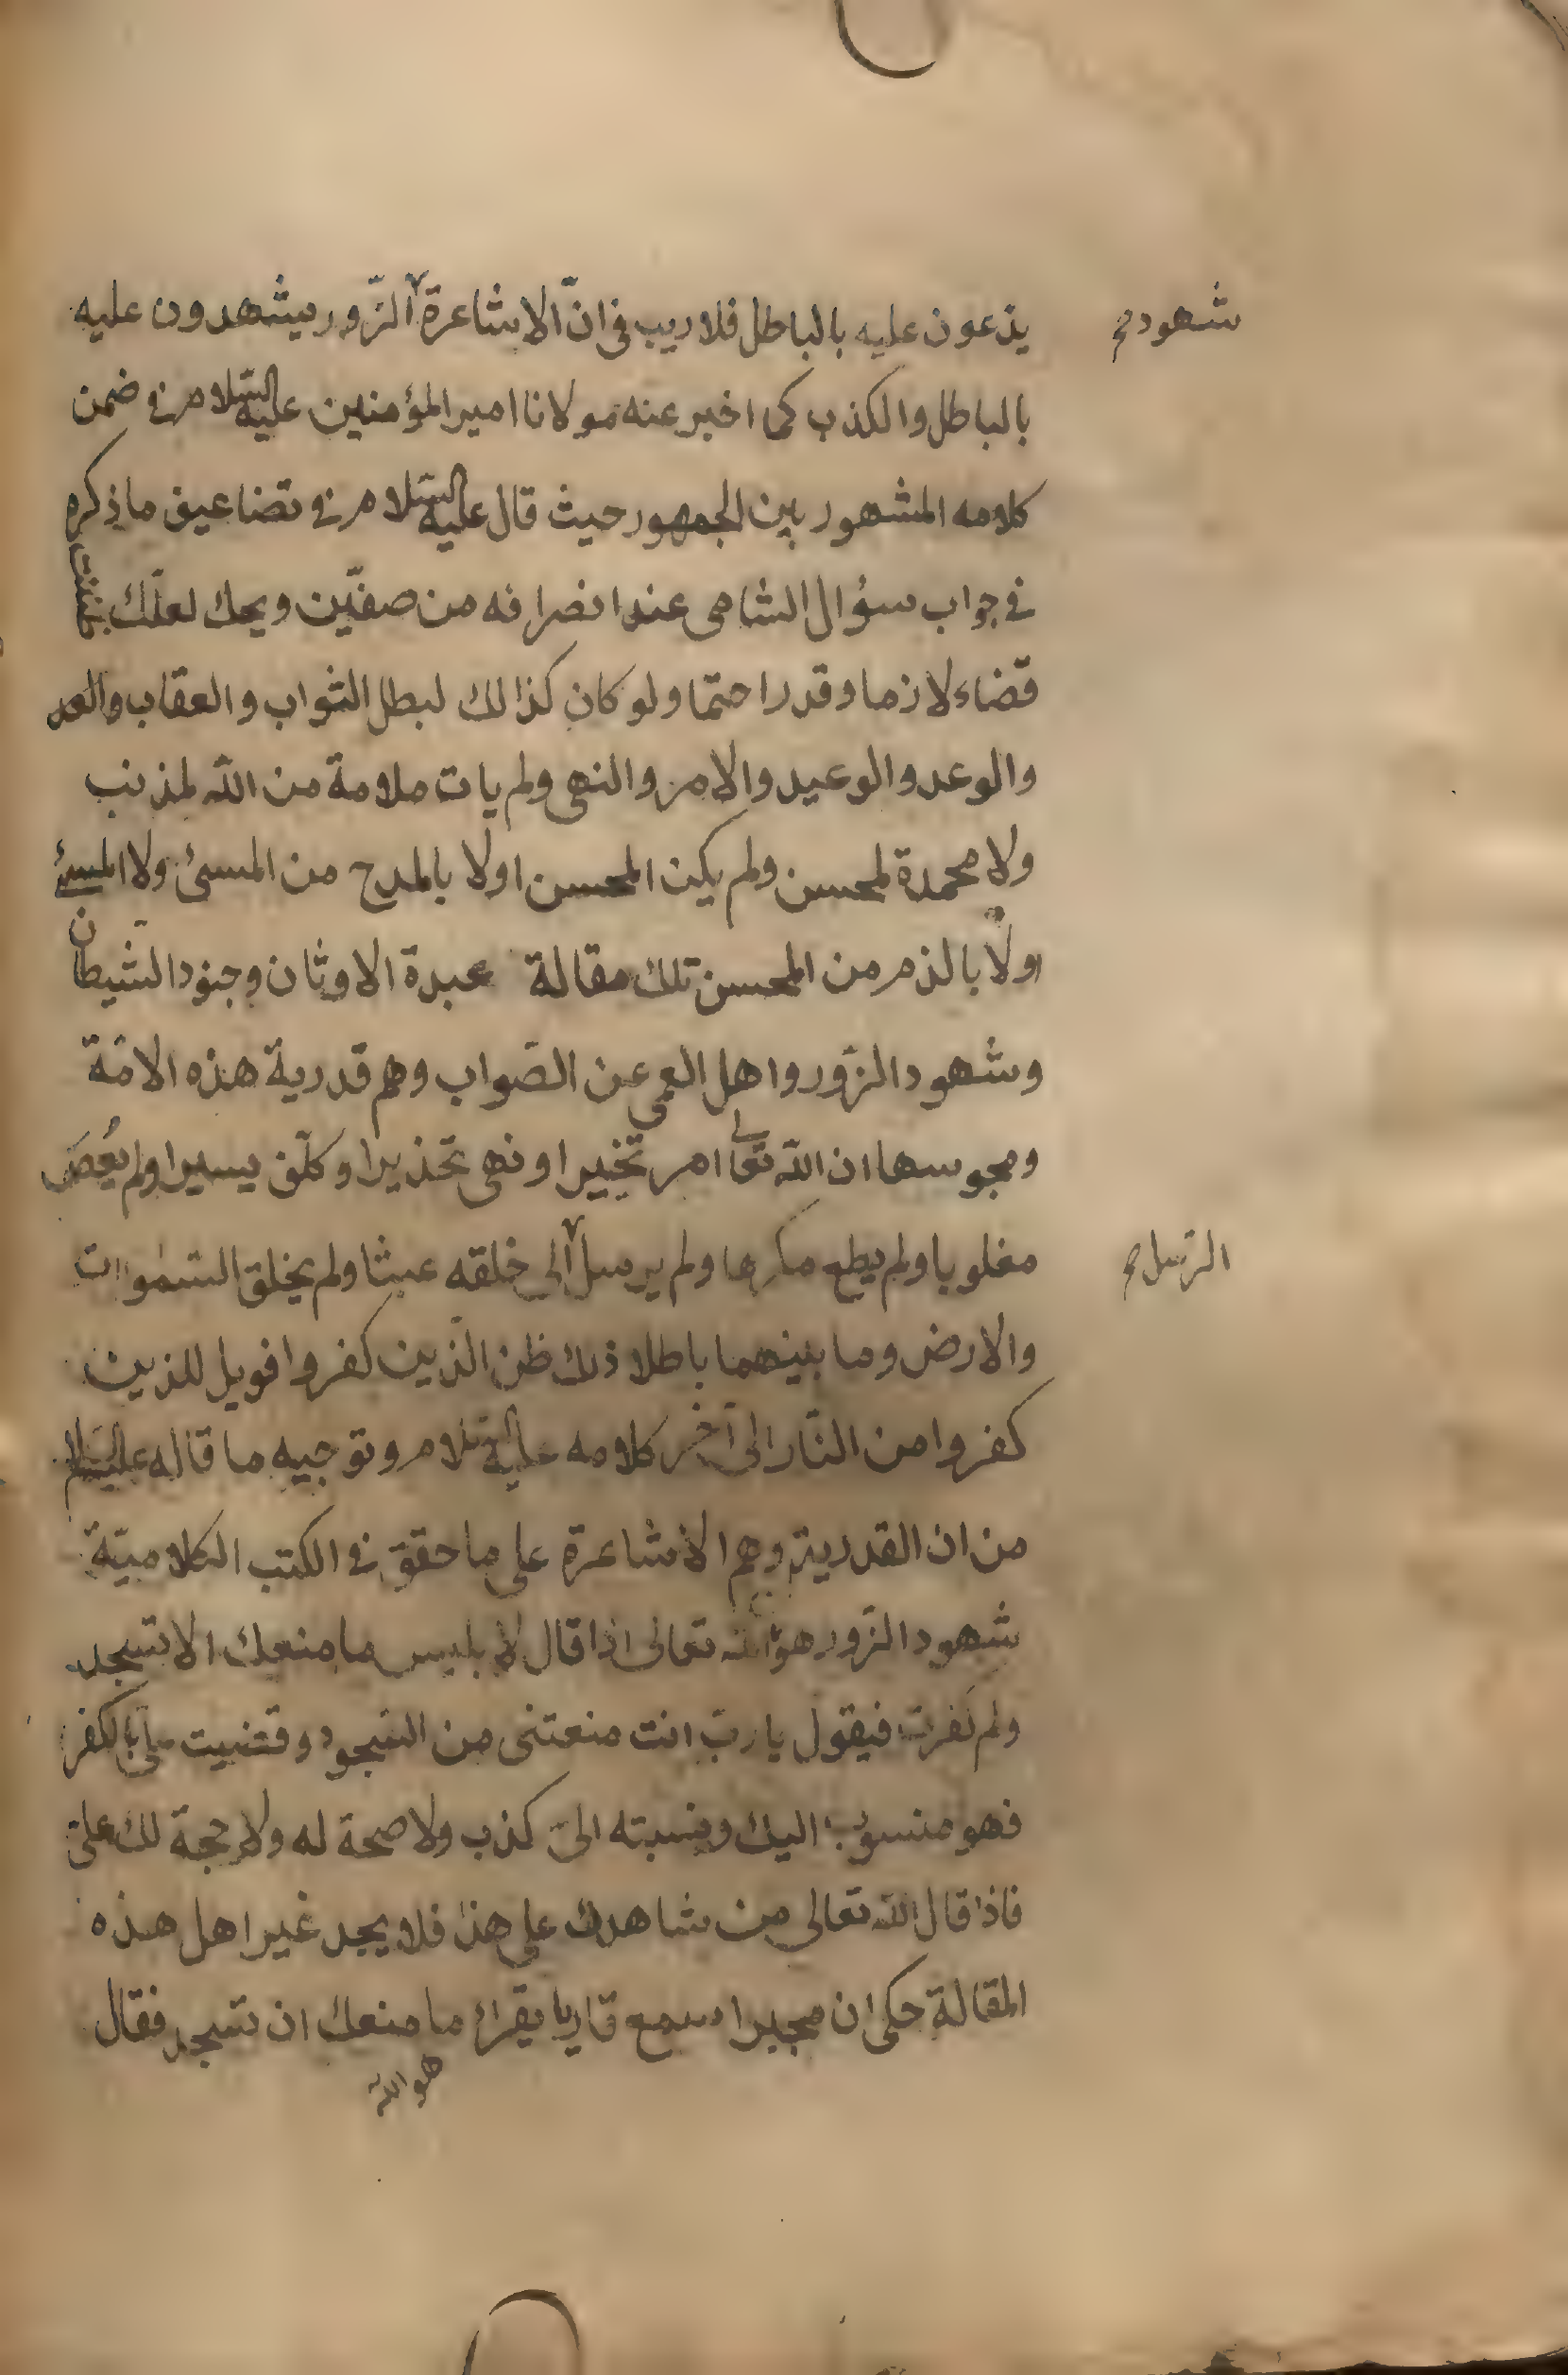 يدعون عليه بالباطل فلا ريب فى انّ الاشاعرة الزّور يشهدون عليه
شهود صح
بالباطل والكذب كما اخبر عنه مولانا امير المؤمنين عليه السّلام في ضمن
كلامه المشهور بين الجمهور حيث قال عليه السّلام في تضاعيف ما ذكره
في جواب سؤال الشامى عند انصرافه من صفّين ويحك لعلّك ظننت
قضاء لازما وقدرا حتما ولو كان كذالك لبطل الثواب والعقاب والعد
والوعد والوعيد والامر والنهى ولم يات ملامة من اللّه لمذنب
ولا محمدة لمحسن ولم يكن المحسن اولا بالمدح من المسئ ولا المسئ
اولا بالذم من المحسن تلك مقالة عبدة الاوثان وجنود الشيطان
وشهود الزّور واهل العمى عن الصّواب وهم قدرية هذه الامّة
ومجوسها ان اللّه تعالى امر تخييرا ونهى تحذيرا وكلّف يسيرا ولم يُعصَ
مغلوبا ولم يطع مكرها ولم يرسل الى خلقه عبثا ولم يخلق السّمٰوات
الرّسل صح
والارض وما بينهما باطلا ذلك ظن الّذين كفروا فويل للذين
كفروا من النّار الى آخر كلامه عليه السّلام وتوجيه ما قاله عليه السّلام
من ان القدرية وهم الاشاعرة على ما حقق في الكتب الكلاميّة
شهود الزّور هو انّه تعالى اذا قال لابليس ما منعك الا تسجد
ولم كفرت فيقول يا ربّ انت منعتنى من السّجود وقضيت علىّ بالكفر
فهو منسوب اليك ونسبته الىّ كذب ولا صحة له ولا حجة لك علىّ
فاذا قال اللّه تعالى من شاهدك على هذا فلا يجد غير اهل هذه
المقالة حكى ان مجبرا سمع قاريا يقراء ما منعك ان تسجد فقال
هو اللّه